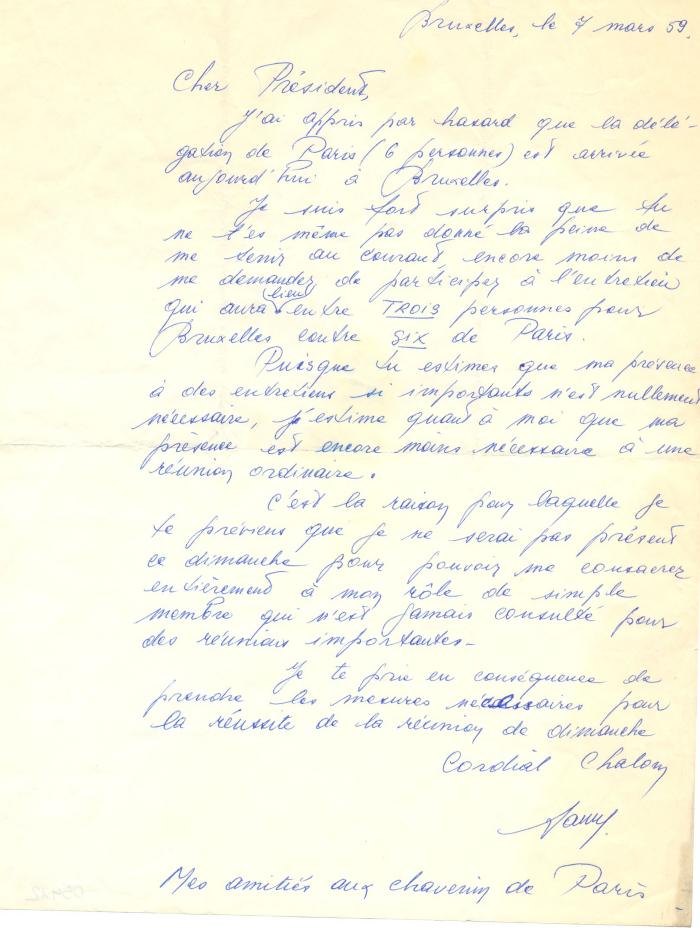 Bruxelles, le 7 mars 59.
Cher Président,
J'ai appris par hasard que la délé-
gation de Paris (6 personnes) est arrivée
aujourd'hui à Bruxelles.
Je suis fort surpris que tu
ne t'es même pas donné la peine de
me tenir au courant encore moins de
me demander de participer à l'entretien
qui aura lieu entre TROIS personnes pour
Bruxelles contre SIX de Paris.
Puisque tu estimes que ma présence
à des entretiens si importants n'est nullement
nécessaire, j'estime quant à moi que ma
présence est encore moins nécessaire à une
réunion ordinaire.
C'est la raison pour laquelle je
te préviens que je ne serai pas présent
ce dimanche pour pouvoir me consacrer
entièrement à mon rôle de simple
membre qui n'est jamais consulté pour
des réunions importantes-
Je te prie en conséquence de
prendre les mesures nécessaires pour
la réussite de la réunion de dimanche
Cordial Chalom
Mes amitiés aux chaverim de Paris